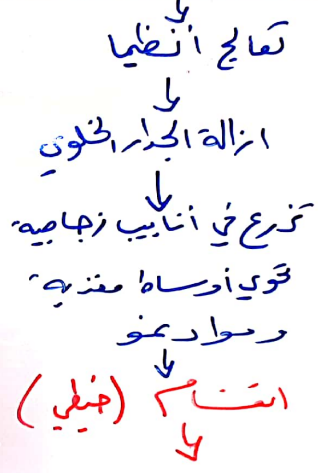 تعالج أنظيما
ازالة الجدار الخلوي
تزرع في أنابيب زجاجية
تحوي أوساط مغذية
ومواد نمو
انقسام (خيطي)